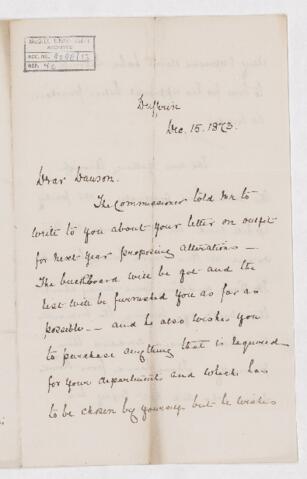 McGILL UNIVERSITY
ARCHIVES
ACC. NO.
REF.
Dufferin
Dec. 15. 1873.
Dear Dawson.
The Commissioner told me to
write to you about your letter on outfit
for next year proposing alterations —
The buckboard will be got and the
rest will be furnished you as far as
possible — and he also wishes you
to purchase anything that is required
for your department and which has
to be chosen by yourself but he wishes